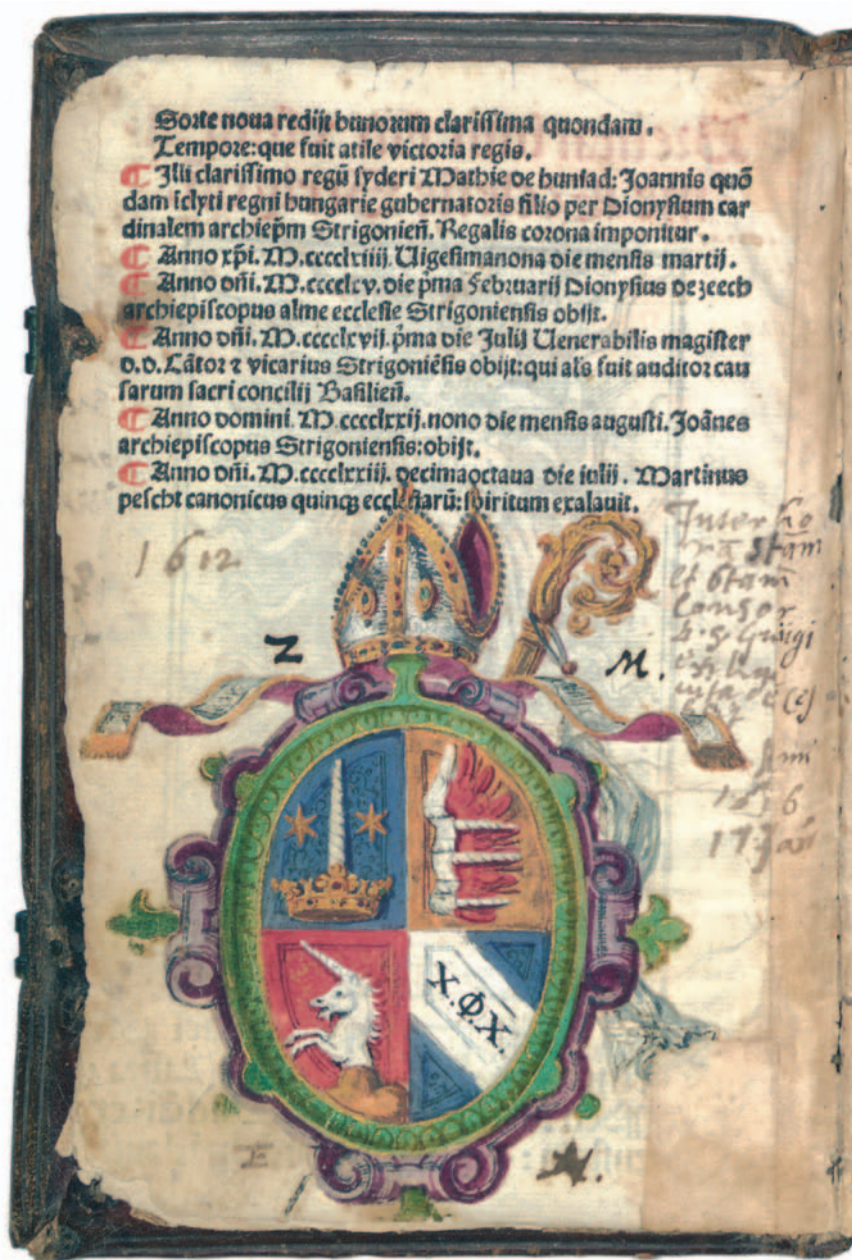 Sorte noua redijt hunorum clarissima quondam.
Tempore: que fuit atile victoria regis.
¶ Illi clarissimo regū syderi Mathie de huniad: Joannis quō
dam iclyti regni hungarie gubernatoris filio per Dionysium car
dinalem archiep̄m Strigonien̄. Regalis corona imponitur.
¶ Anno xp̄i. M.cccclxiiij. Uigesimanona die mensis martij.
¶ Anno dn̄i. M.cccclxv. die p̄ma Februarij Dionysius de zeech
archiepiscopus alme ecclesie Strigoniensis obijt.
¶ Anno dn̄i. M.cccclxvij. p̄ma die Julij Uenerabilis magister
d.d. Cātor ⁊ vicarius Strigoniēsis obijt: qui als̄ fuit auditor cau
sarum sacri concilij Basilien̄.
¶ Anno domini. M.cccclxxij. nono die mensis augusti. Joānes
archiepiscopus Strigoniensis: obijt.
¶ Anno dn̄i. M.cccclxxiij. decimaoctaua die iulij. Martinus
pescht canonicus quinqꝫ ecclesiarū: spiritum exalauit.
1612
Z
M.
X.Φ.X.
E
N.